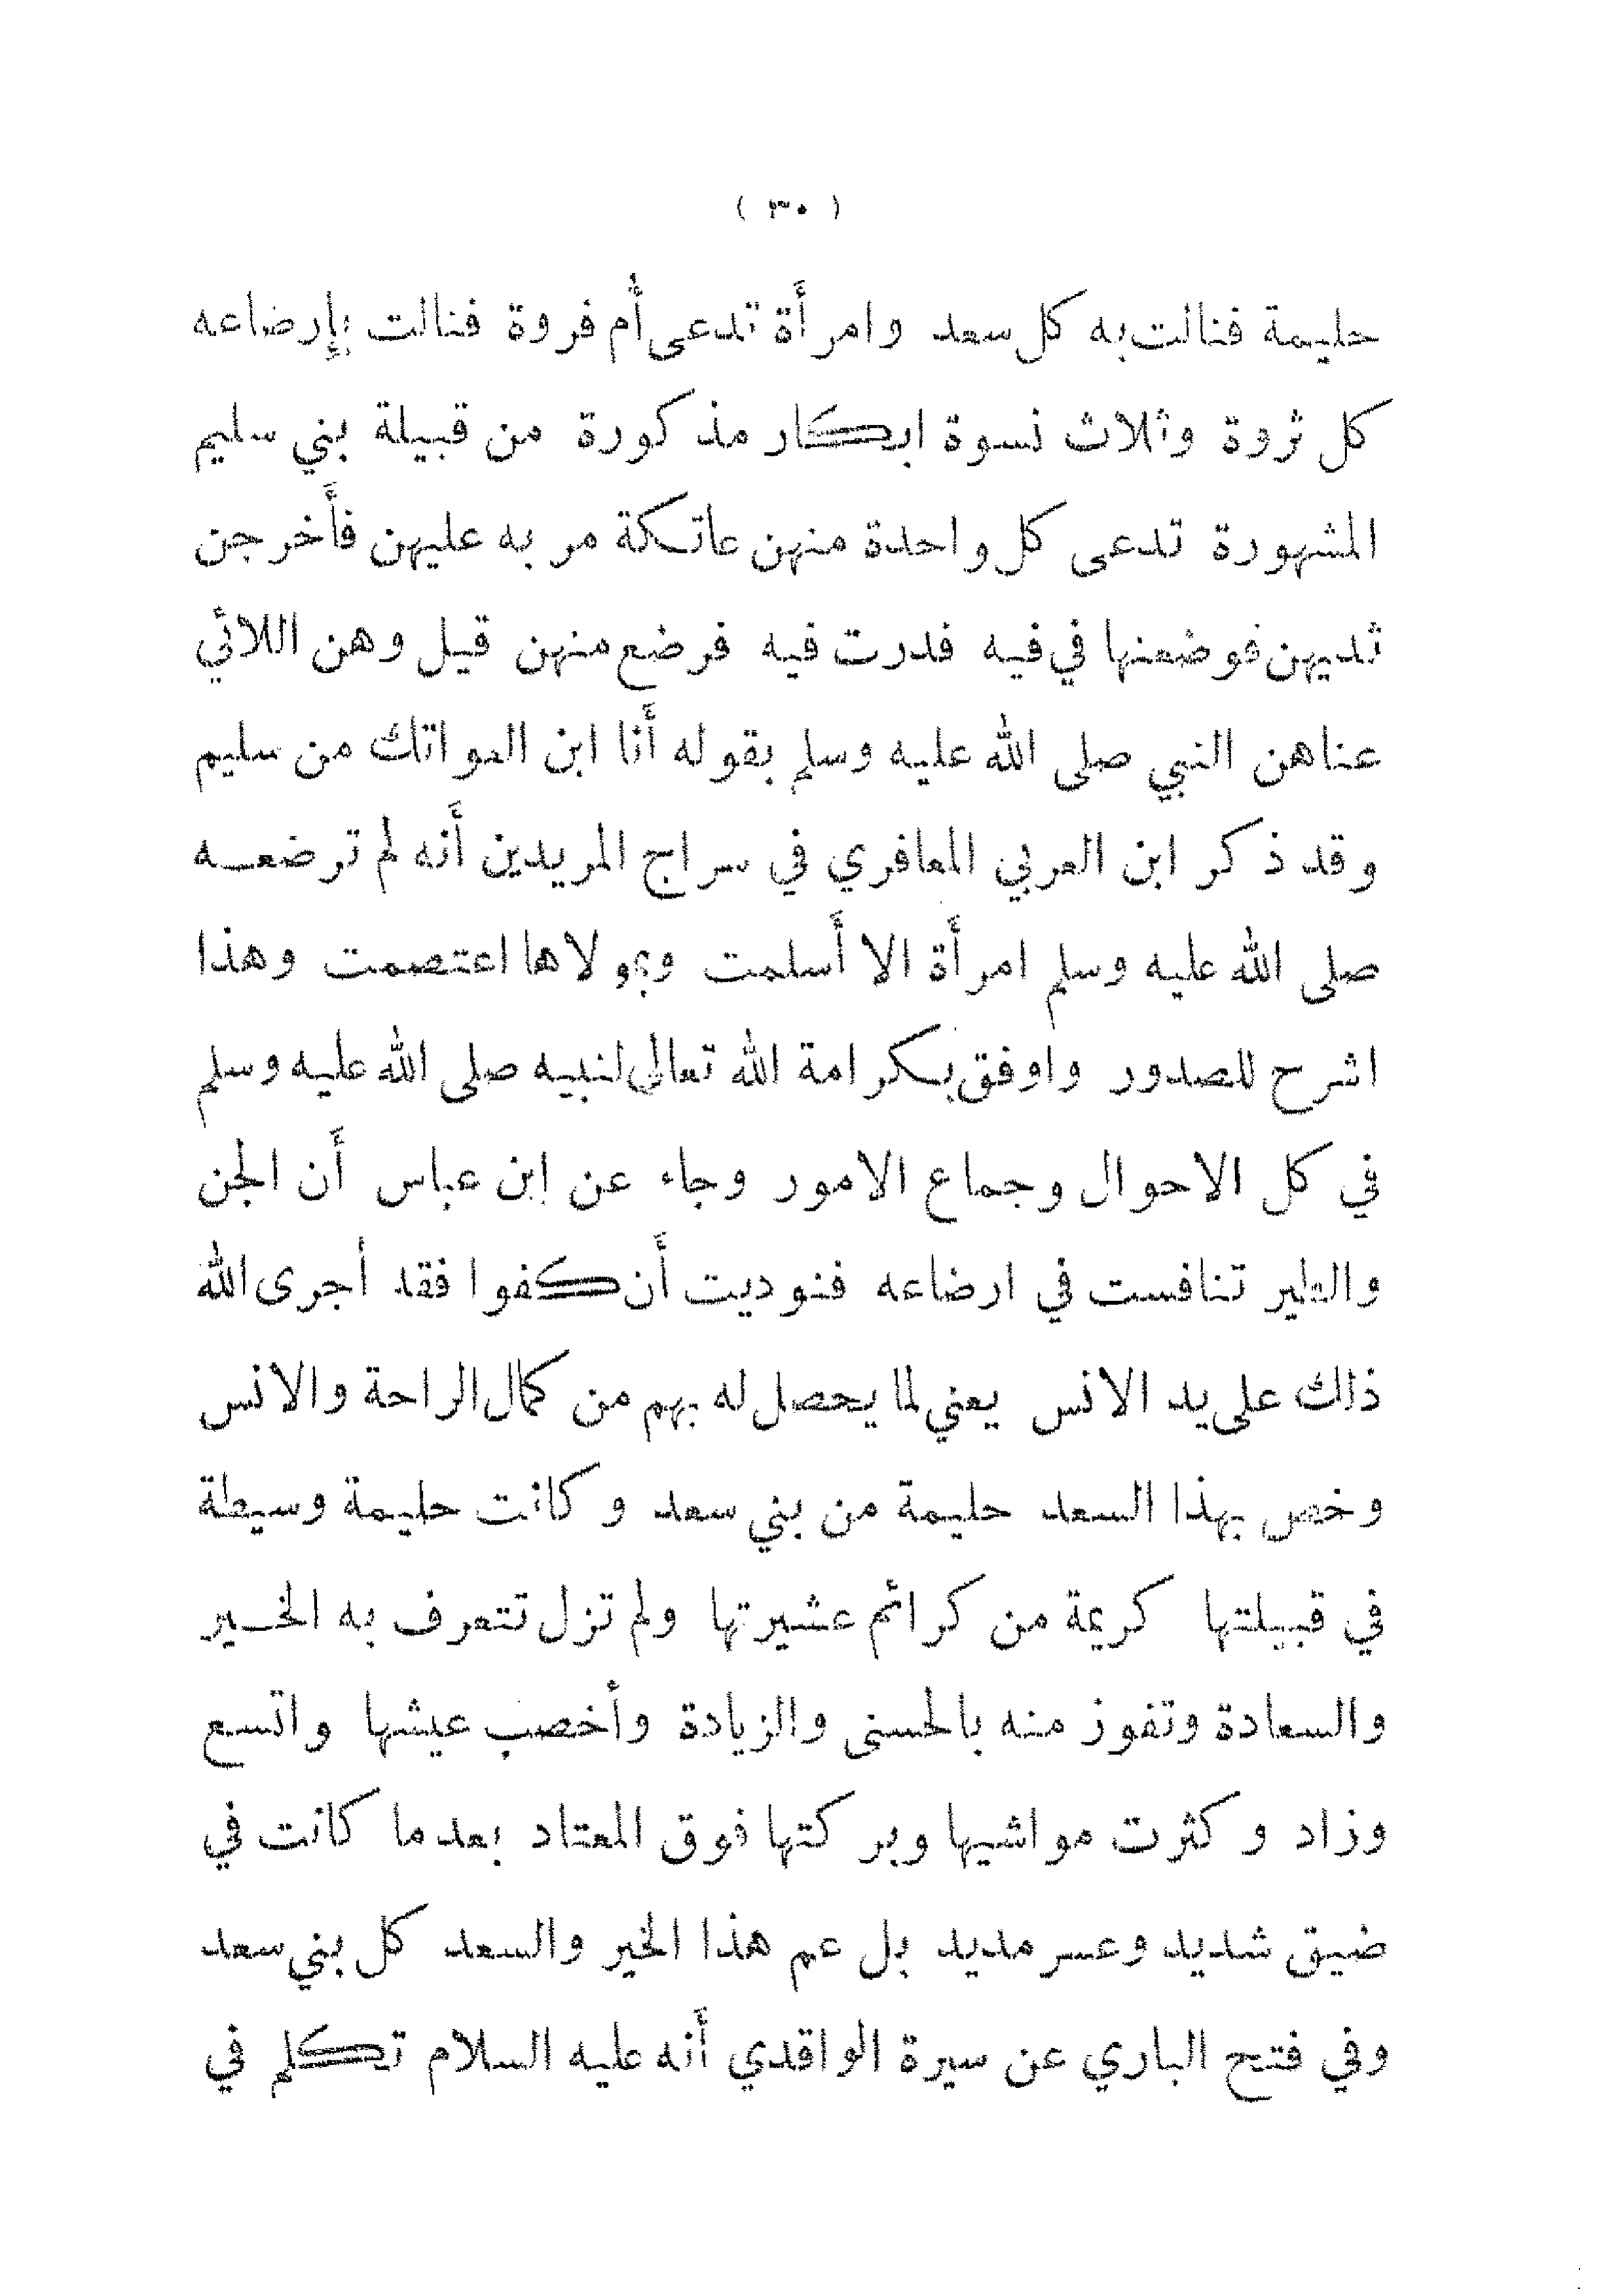 ( ٣٠ )
حليمة فنالت به كل سعد وامرأة تدعى أم فروة فنالت بإرضاعه
كل ثروة وثلاث نسوة ابكار مذكورة من قبيلة بني سليم
المشهورة تدعى كل واحدة منهن عاتكة مر به عليهن فأخرجن
ثديهن فوضعنها في فيه فدرت فيه فرضع منهن قيل وهن اللائي
عناهن النبي صلى الله عليه وسلم بقوله أنا ابن العواتك من سليم
وقد ذكر ابن العربي المعافري في سراج المريدين أنه لم ترضعه
صلى الله عليه وسلم امرأة الا أسلمت وبمولاها اعتصمت وهذا
اشرح للصدور واوفق بكرامة الله تعالى لنبيه صلى الله عليه وسلم
في كل الاحوال وجماع الامور وجاء عن إبن عباس أن الجن
والطير تنافست في ارضاعه فنوديت أن كفوا فقد أجرى الله
ذلك على يد الانس يعني لما يحصل له بهم من كمال الراحة والانس
وخص بهذا السعد حليمة من بني سعد وكانت حليمة وسيطة
في قبيلتها كريمة من كرائم عشيرتها ولم تزل تتعرف به الخير
والسعادة وتفوز منه بالحسنى والزيادة وأخصب عيشها واتسع
وزاد وكثرت مواشيها وبركتها فوق المعتاد بعدما كانت في
ضيق شديد وعسر مديد بل عم هذا الخير والسعد كل بني سعد
وفي فتح الباري عن سيرة الواقدي أنه عليه السلام تكلم في